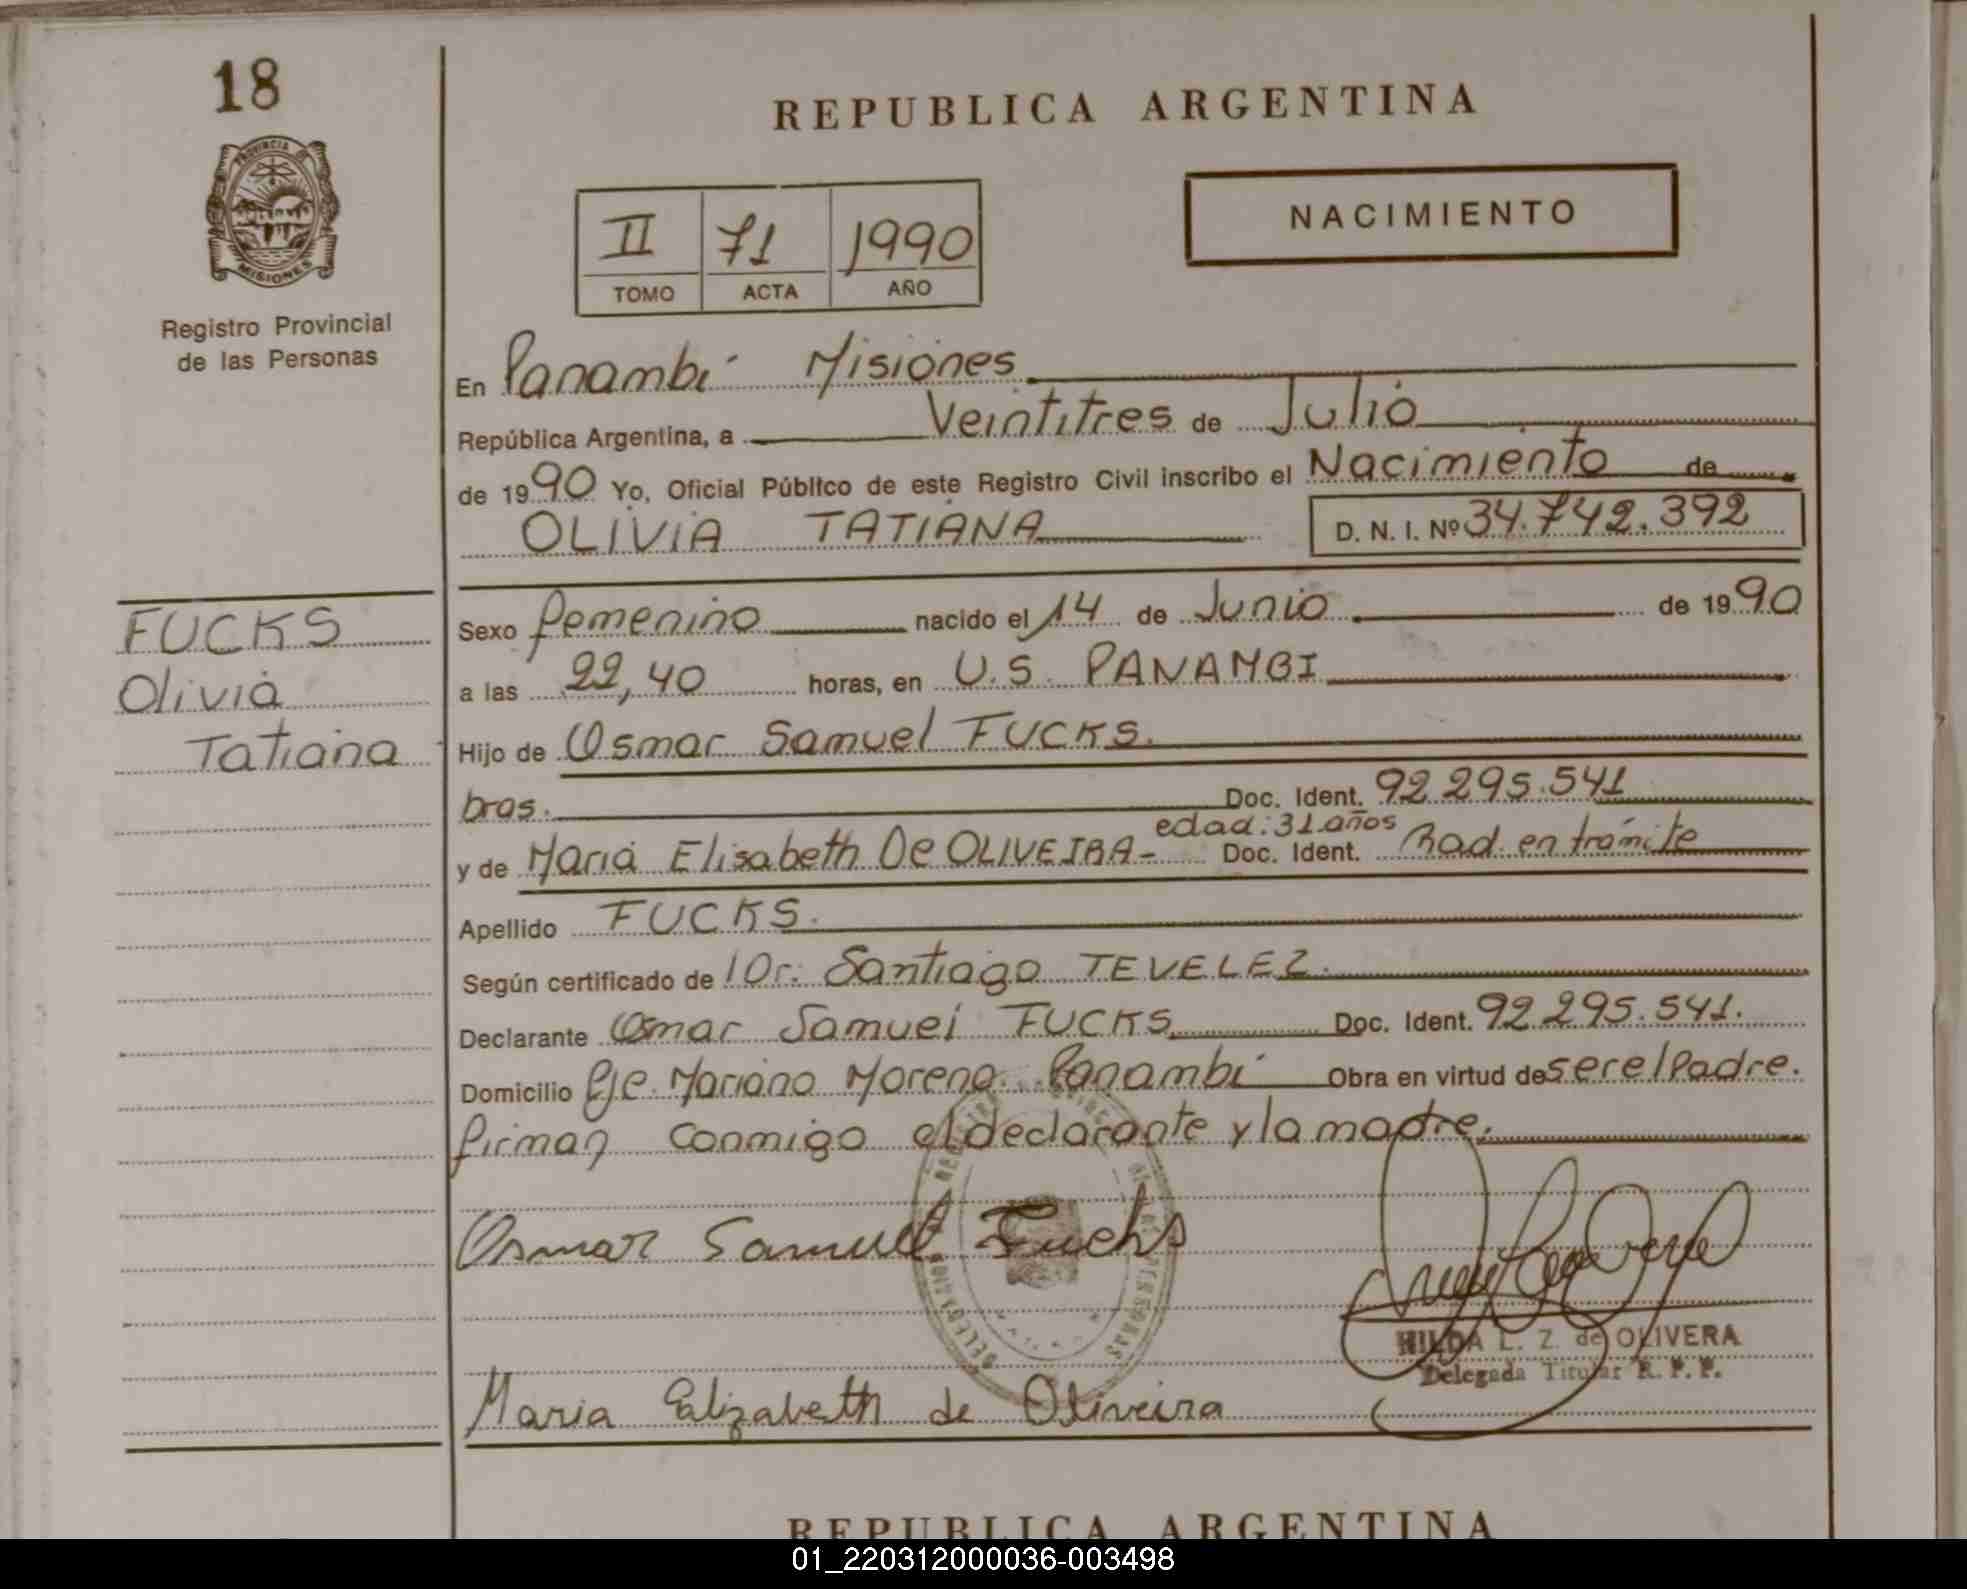 18
PROVINCIA DE
MISIONES
Registro Provincial
de las Personas
REPUBLICA ARGENTINA
II 71 1990
TOMO ACTA AÑO
NACIMIENTO
En Panambí Misiones
República Argentina, a Veintitres de Julio
de 1990 Yo, Oficial Público de este Registro Civil inscribo el Nacimiento de
OLIVIA TATIANA D. N. I. Nº 34.742.392
FUCKS
Olivia
Tatiana
Sexo femenino nacido el 14 de Junio de 1990
a las 22,40 horas, en U.S. PANAMBI
Hijo de Osmar Samuel FUCKS.
bras. Doc. Ident. 92 295.541
edad: 31 años
y de Maria Elisabeth De OLIVEIRA- Doc. Ident. Rad. en trámite
Apellido FUCKS.
Según certificado de Dr. Santiago TEVELEZ.
Declarante Osmar Samuel FUCKS Doc. Ident. 92 295.541.
Domicilio Pje. Mariano Moreno Panambí Obra en virtud de ser el Padre.
firman conmigo el declarante y la madre.
Osmar Samuel Fucks
HILDA L. Z. de OLIVERA
Delegada Titular R. P. P.
Maria Elizabeth de Oliveira
REPUBLICA ARGENTINA
01_220312000036-003498